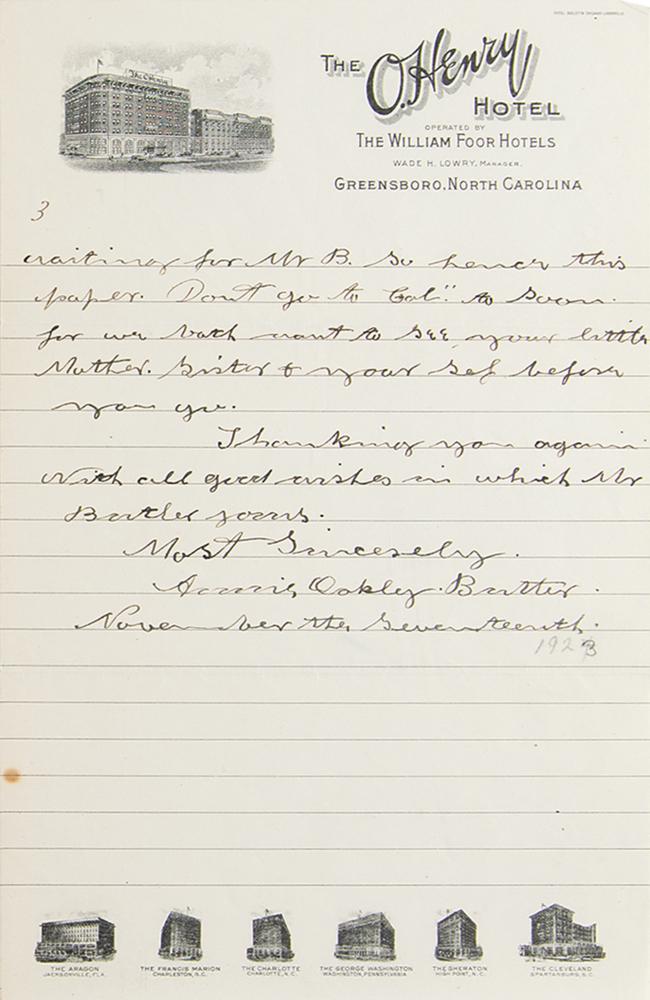 The O.Henry
THE O. Henry HOTEL
OPERATED BY
THE WILLIAM FOOR HOTELS
WADE H. LOWRY, MANAGER.
GREENSBORO, NORTH CAROLINA
3
waiting for Mr B. So hence this
paper. Don't go to Cal" to Soon.
for we both want to See your little
Mother. Sister & your Self before
you go.
Thanking you again
With all good wishes in which Mr
Butler joins.
Most Sincerely.
Annie Oakley. Butler.
November the Seventeenth.
1923
THE ARAGON
JACKSONVILLE, FLA.
THE FRANCIS MARION
CHARLESTON, S.C.
THE CHARLOTTE
CHARLOTTE, N.C.
THE GEORGE WASHINGTON
WASHINGTON, PENNSYLVANIA
THE SHERATON
HIGH POINT, N.C.
THE CLEVELAND
SPARTANBURG, S.C.